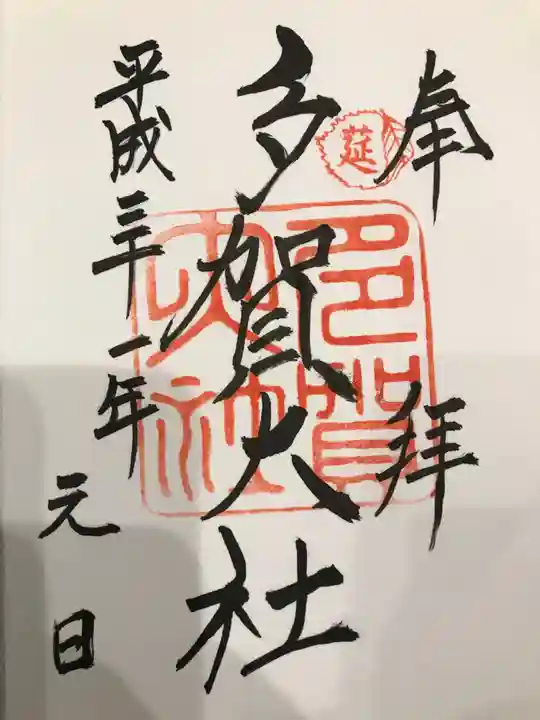 奉拝
莚
多賀大社
多賀大社
平成三十一年
元日